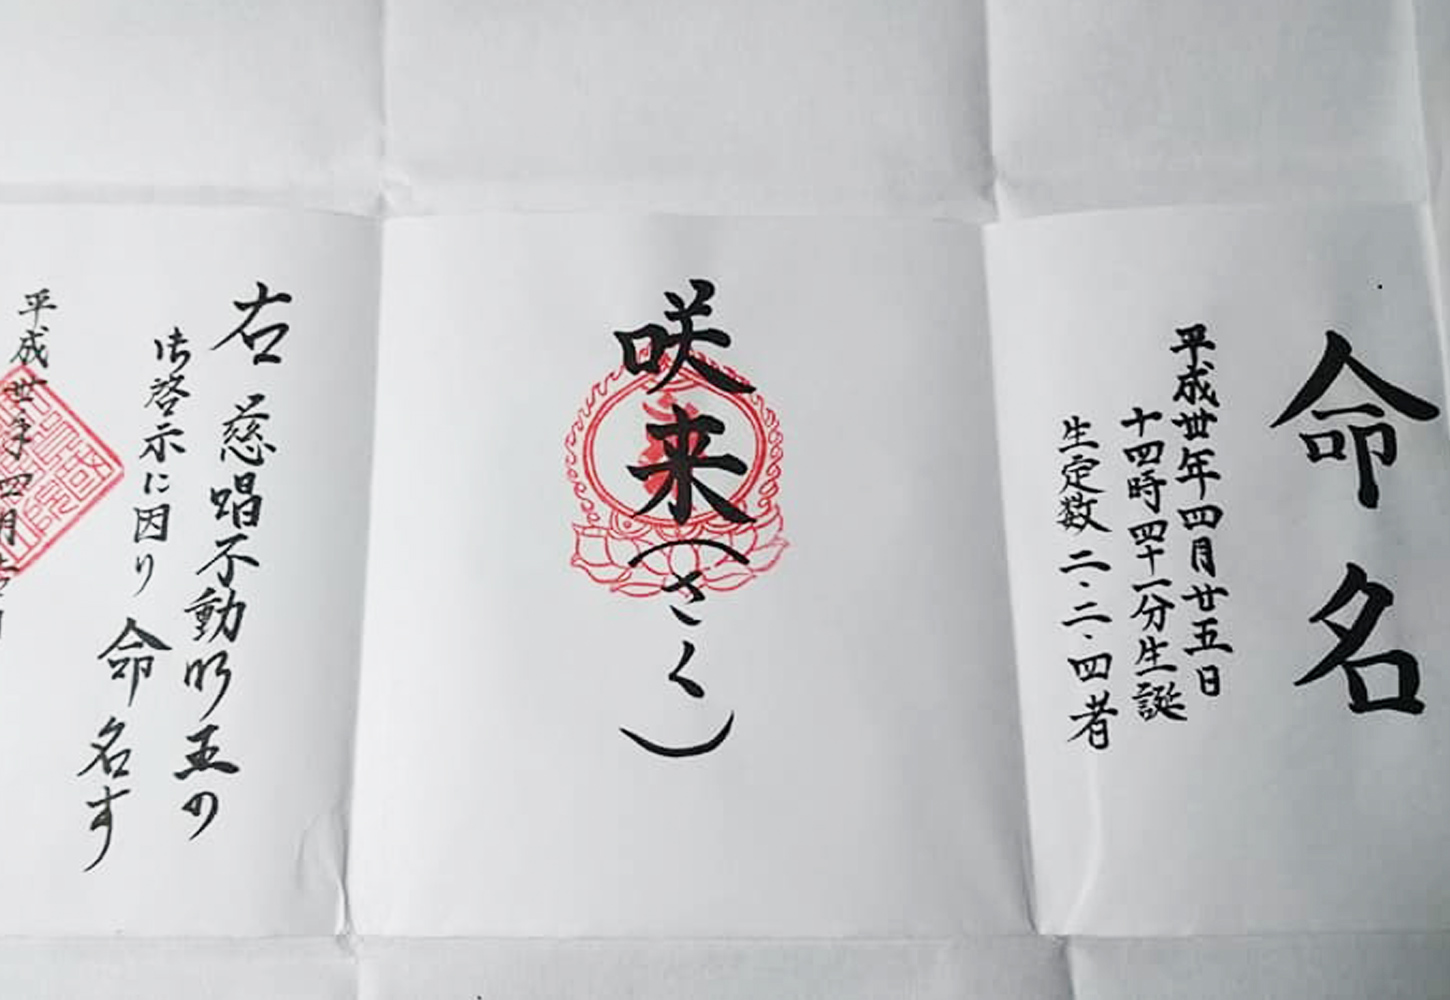 命名
平成丗年四月廿五日
十四時四十一分生誕
生定数二・二・四者
咲来(さく)
右 慈唱不動明王の
御啓示に因り 命名す
平成丗年四月